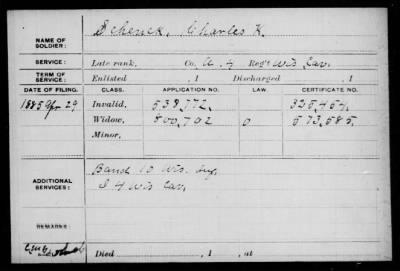 NAME OF SOLDIER: Schenck, Charles K.
SERVICE: Late rank, Co. A. 4 Reg't Wis Cav.
TERM OF SERVICE: Enlisted , 1 Discharged , 1
DATE OF FILING. CLASS. APPLICATION NO. CERTIFICATE NO.
1885 Apr 29 Invalid, 538,772. 325,454.
Widow, 800,702 0 573,585.
Minor,
ADDITIONAL SERVICES: Band 10 Wis. Inf.
I 4 Wis Cav.
REMARKS:
Died , 1 , at